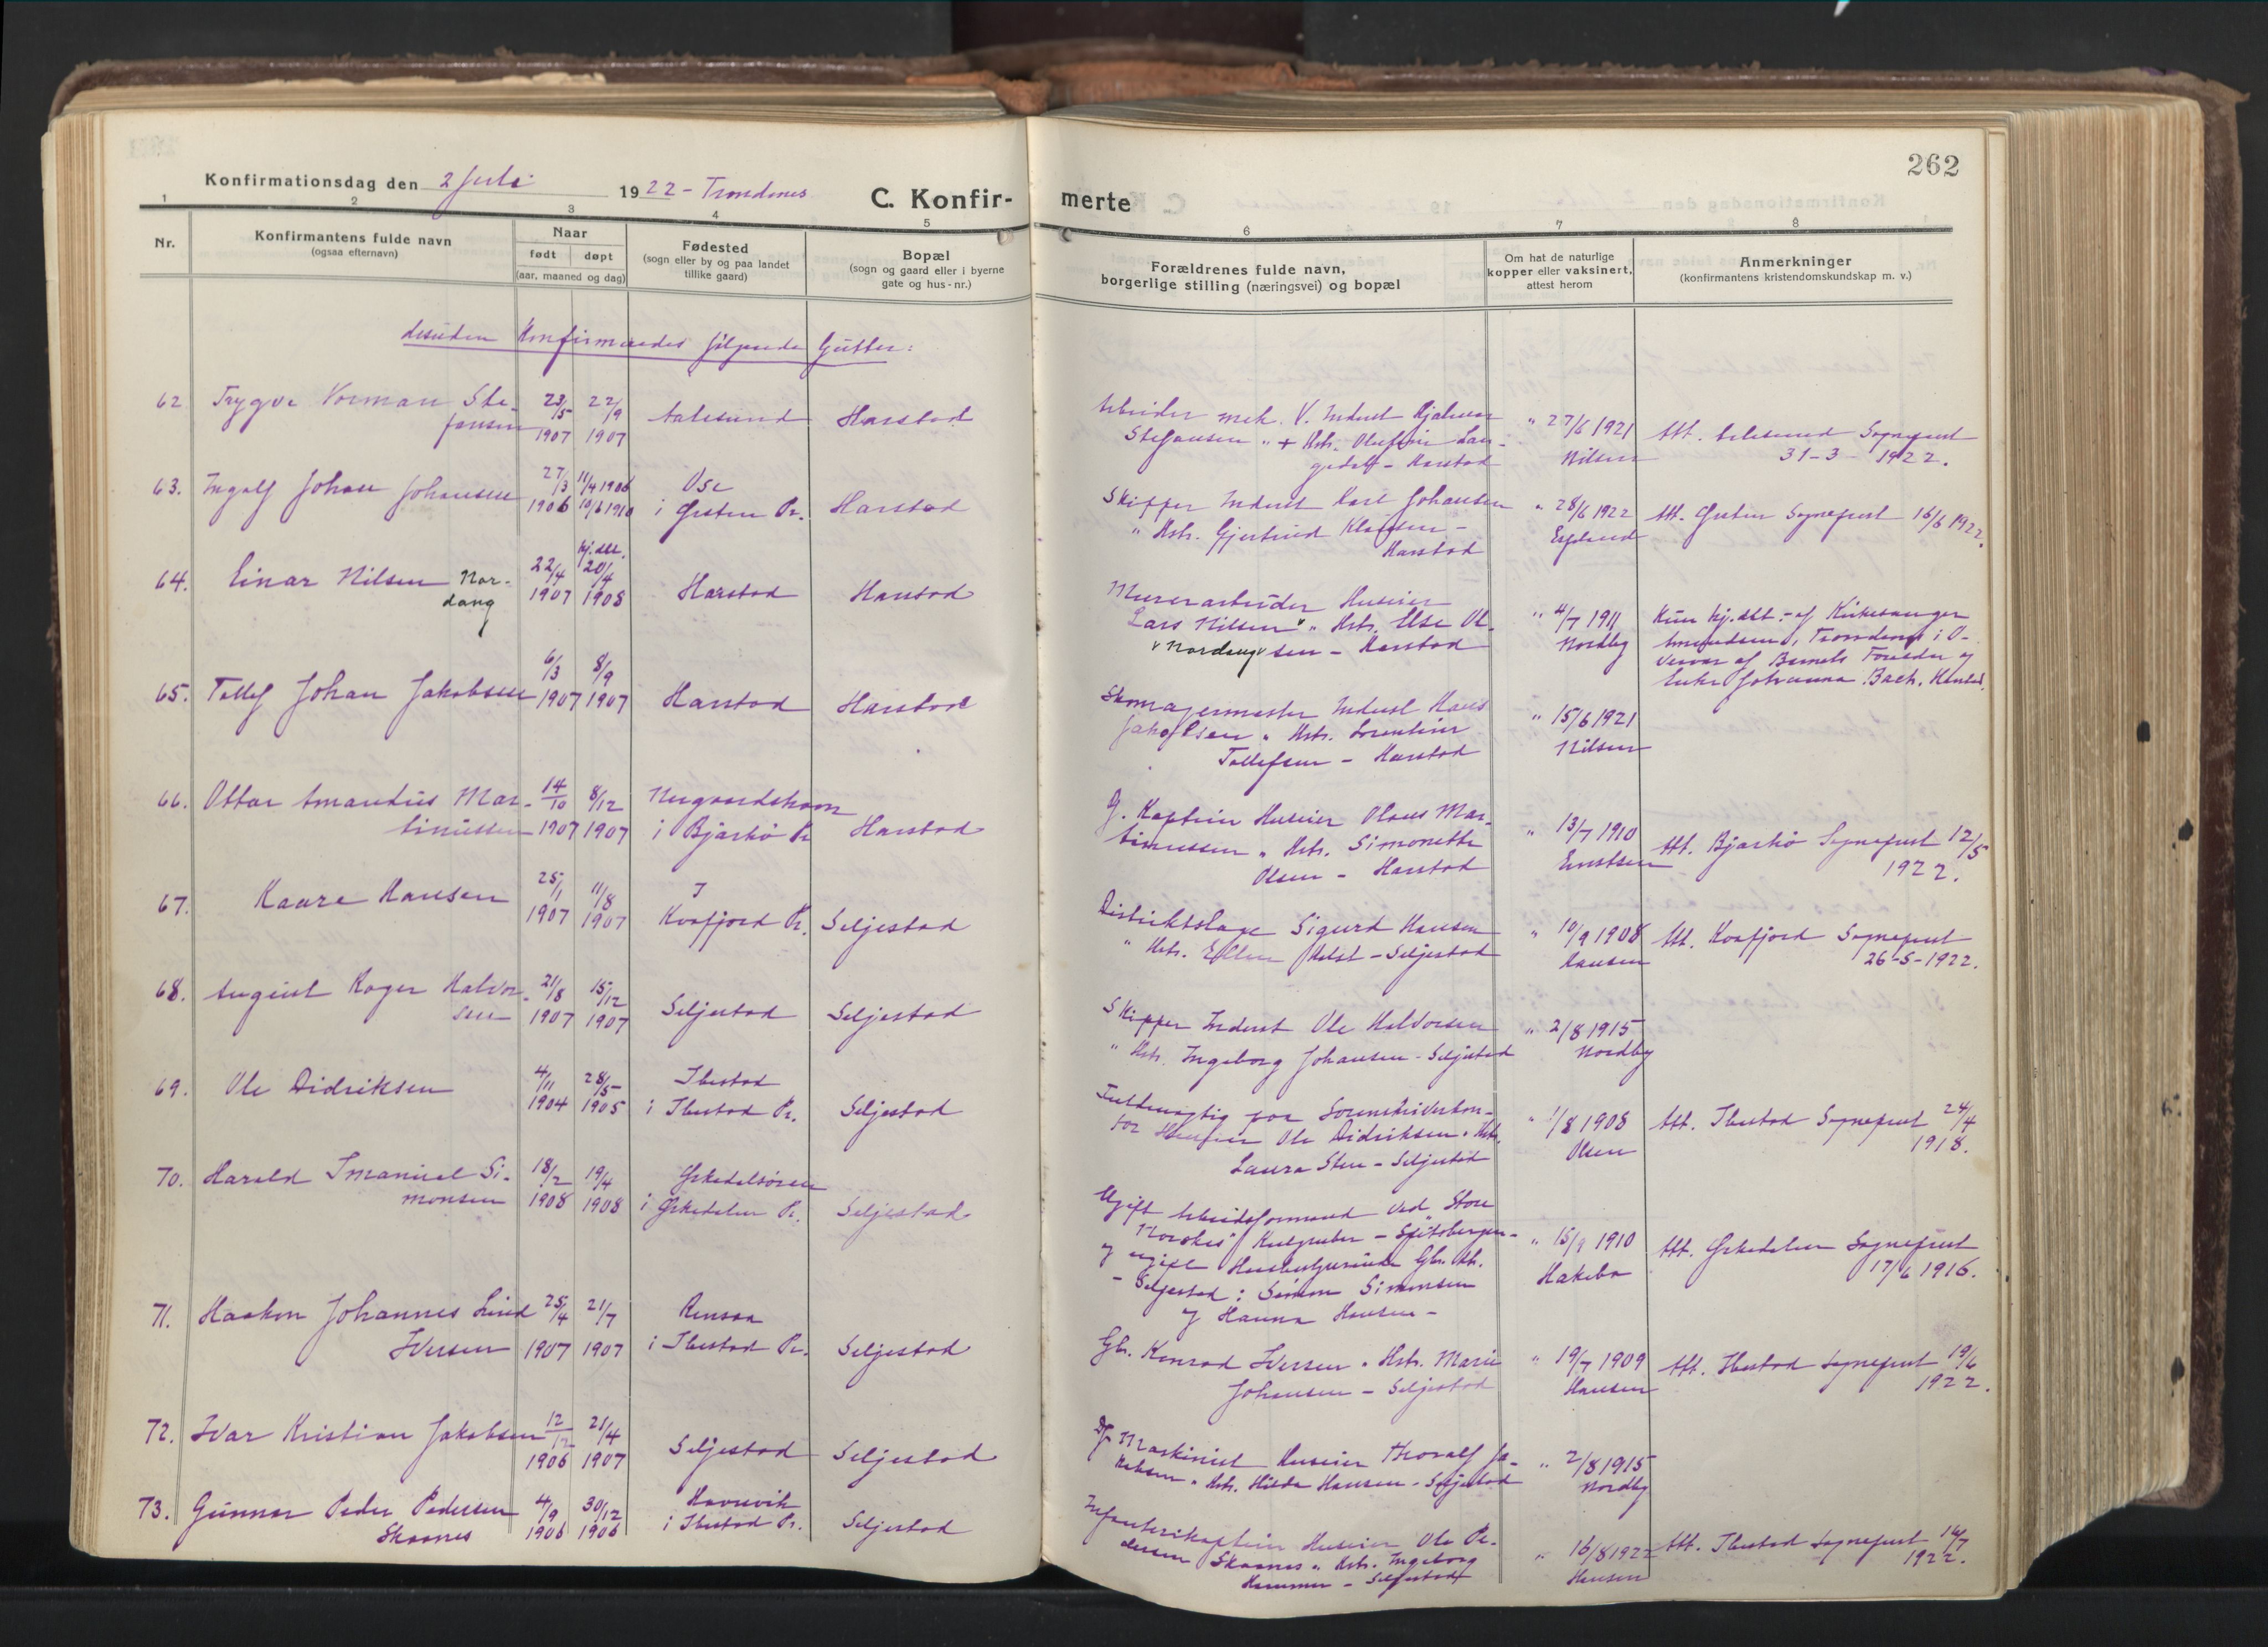 262
Konfirmationsdag den 2 Juli 1922 - Trondenes
C. Konfir-
merte
1
2
3
4
5
6
7
8
Nr.
Konfirmantens fulde navn
(ogsaa efternavn)
Naar
født
døpt
(aar, maaned og dag)
Fødested
(sogn eller by og paa landet
tillike gaard)
Bopæl
(sogn og gaard eller i byerne
gate og hus-nr.)
Forældrenes fulde navn,
borgerlige stilling (næringsvei) og bopæl
Om hat de naturlige
kopper eller vaksinert,
attest herom
Anmerkninger
(konfirmantens kristendomskundskap m. v.)
desuden Konfirmeredes følgende Gutter:
62 Trygve Norman Ste-
fansen
23/5 1907
22/9 1907
Aalesund
Harstad
Arbeider mek. V. Inderst Hjalmar
Stefansen " + Hstr. Olufine Lan-
gedal - Harstad
" 27/6 1921
Nilsen
Att. Aalesund Sogneprest
31-3-1922.
63. Ingolf Johan Johansen
27/3 1906
11/4 1906
10/6 1910
Ose
i Gisten Pr.
Harstad
Skipper Inderst Karl Johansen
" Hstr. Gjertrud Klausen -
Harstad
" 28/6 1922
Att. Sogneprest 16/6 1922.
64. Einar Nilsen Nor-
dang
22/4 1907
hj.dbt.
20/4 1908
Harstad
Harstad
Murerarbeider Huseier
Lars Nilsen " Hstr. Else Ol-
"Nordang" sen - Harstad
" 4/7 1911
Nordby
Kun hj.dbt. - af Kirkesanger
Amundsen, Trondenes i O-
vervær af Barnets Forældre og
Enke Johanna Bach. Harstad.
65. Tollef Johan Jakobsen
6/3 1907
8/9 1907
Harstad
Harstad
Skomagermester Inderst Hans
Jakobsen " Hstr. Lorentine
Tollefsen - Harstad
" 15/6 1921
Nilsen
66. Ottar Amandus Mar-
tinussen
14/10 1907
8/12 1907
Nergaardshavn
i Bjarkø Pr.
Harstad
G. Kaptein Huseier Olaus Mar-
tinussen " Hstr. Simonette
Olsen - Harstad
" 13/7 1910
Ernstsen
Att. Bjarkø Sogneprest 12/5
1922.
67. Kaare Hansen
25/1 1907
11/8 1907
I
Kvæfjord Pr.
Seljestad
Distriktslæge Sigurd Hansen
" Hstr. Ellen Holst - Seljestad
" 10/9 1908
Hansen
Att. Kvæfjord Sogneprest
26-5-1922.
68. August Roger Halvor-
sen
21/8 1907
15/12 1907
Seljestad
Seljestad
Skipper Inderst Ole Halvorsen
" Hstr. Ingeborg Johansen - Seljestad
" 2/8 1915
Nordby
69. Ole Didriksen
4/11 1904
28/5 1905
Ibestad
i Ibestad Pr.
Seljestad
Fuldmægtig paa Sorenskriverkon-
tor Huseier Ole Didriksen " Hstr.
Laura Sten - Seljestad
" 1/8 1908
Olsen
Att. Ibestad Sogneprest 24/4
1918.
70. Harald Imanuel Si-
monsen
18/2 1908
19/4 1908
Ørkedalsøren
i Ørkedalen Pr.
Seljestad
Ugift Arbeidsformand ved "Store
Norske" Kulgruber - Spitsbergen -
og ugift
- Seljestad: Simon Simonsen
og Hanna Hansen -
" 15/9 1910
Hakebo
Att. Ørkedalen Sogneprest
17/6 1916.
71. Haakon Johannes Lind
Iversen
25/4 1907
21/7 1907
Rensaa
i Ibestad Pr.
Seljestad
Gbr. Konrad Iversen " Hstr. Marie
Johansen - Seljestad
" 19/7 1909
Hansen
Att. Ibestad Sogneprest 19/6
1922.
72. Ivar Kristian Jakobsen
12/12 1906
21/4 1907
Seljestad
Seljestad
Maskinist Huseier Thoralf Ja-
kobsen " Hstr. Hilda Hansen - Seljestad
" 2/8 1915
Nordby
73. Gunnar Peder Pedersen
Skaanes
4/9 1906
30/12 1906
Havnvik
i Ibestad Pr.
Seljestad
Infanterikaptein Huseier Ole Pe-
dersen Skaanes " Hstr. Ingeborg
Hammer - Seljestad
" 16/8 1922
Hansen
Att. Ibestad Sogneprest 16/7
1922.